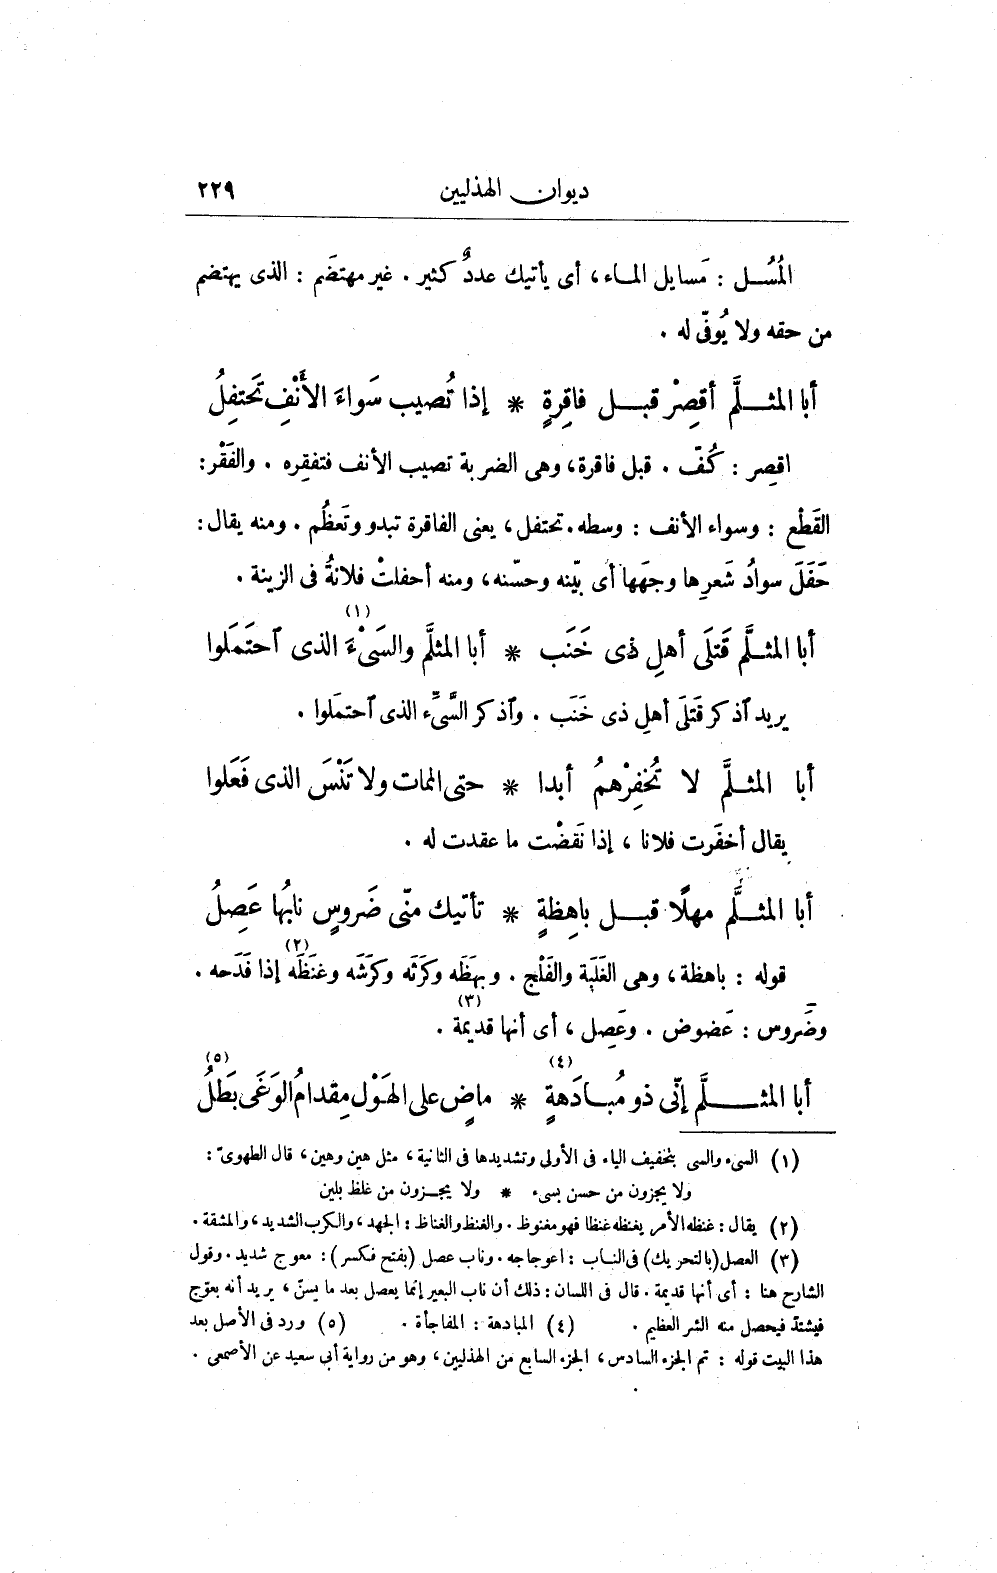 ديوان الهذليين ٢٢٩
المُسُل : مَسايل الماء، أى يأتيك عددٌ كثير . غير مهتضَم : الذى يهتضم
من حقه ولا يُوفّى له .
أبا المثلَّم أقصِرْ قبل فاقِرةٍ * إذا تُصيب سَواءَ الأَنْفِ تَحتفِلُ
اقصِر : كُفّ . قبل فاقرة، وهى الضربة تصيب الأنف فتفقِره . والفَقْر:
القَطْع : وسواء الأنف : وسطه. تحتفل، يعنى الفاقرة تبدو وتَعظُم . ومنه يقال:
حَفَلَ سوادُ شَعرِها وجهَها أى بيّنه وحسّنه، ومنه أحفلتْ فلانةُ فى الزينة .
أبا المثلَّم قَتلَى أهلِ ذى خَنَب * أبا المثلَّم والسَىْءَ (١) الذى ٱحتَمَلوا
يريد ٱذكر قَتلَى أهلِ ذى خَنَب . وٱذكر السَّىِّء الذى ٱحتملوا .
أبا المثلَّم لا تُخفِرْهمُ أبدا * حتى الممات ولا تَنْسَ الذى فَعَلوا
يقال أخفَرت فلانا ، إذا نَقضْت ما عقدت له .
أبا المثلَّم مهلًا قبل باهِظةٍ * تأتيك منّى ضَروسٍ نابُها عَصِلُ
قوله : باهظة، وهى الغَلَبة والفَلْج . وبهَظَه وكرَثَه وكرَشَه وغنَظَه (٢) إذا فَدَحه .
وضَروس : عَضوض . وعَصِل (٣) ، أى أنها قديمة .
أبا المثلَّم إنّى ذو مُبادَهةٍ (٤) * ماضٍ على الهَوْل مِقدامُ الوَغَى بَطَلُ (٥)
(١) السىء والسى بتخفيف الياء فى الأولى وتشديدها فى الثانية، مثل هين وهين، قال الطهوىّ :
ولا يجزون من حسن بسىء * ولا يجزون من غلظ بلين
(٢) يقال : غنظه الأمر يغنظه غنظا فهو مغنوظ . والغنظ والغناظ : الجهد، والكرب الشديد، والمشقة .
(٣) العصل (بالتحريك) فى الناب : اعوجاجه . وناب عصل (بفتح فكسر) : معوج شديد . وقول
الشارح هنا : أى أنها قديمة . قال فى اللسان : ذلك أن ناب البعير إنما يعصل بعد ما يسنّ، يريد أنه يعوّج
فيشتدّ فيحصل منه الشر العظيم . (٤) المبادهة : المفاجأة . (٥) ورد فى الأصل بعد
هذا البيت قوله : تم الجزء السادس، الجزء السابع من الهذليين، وهو من رواية أبى سعيد عن الأصمعى .